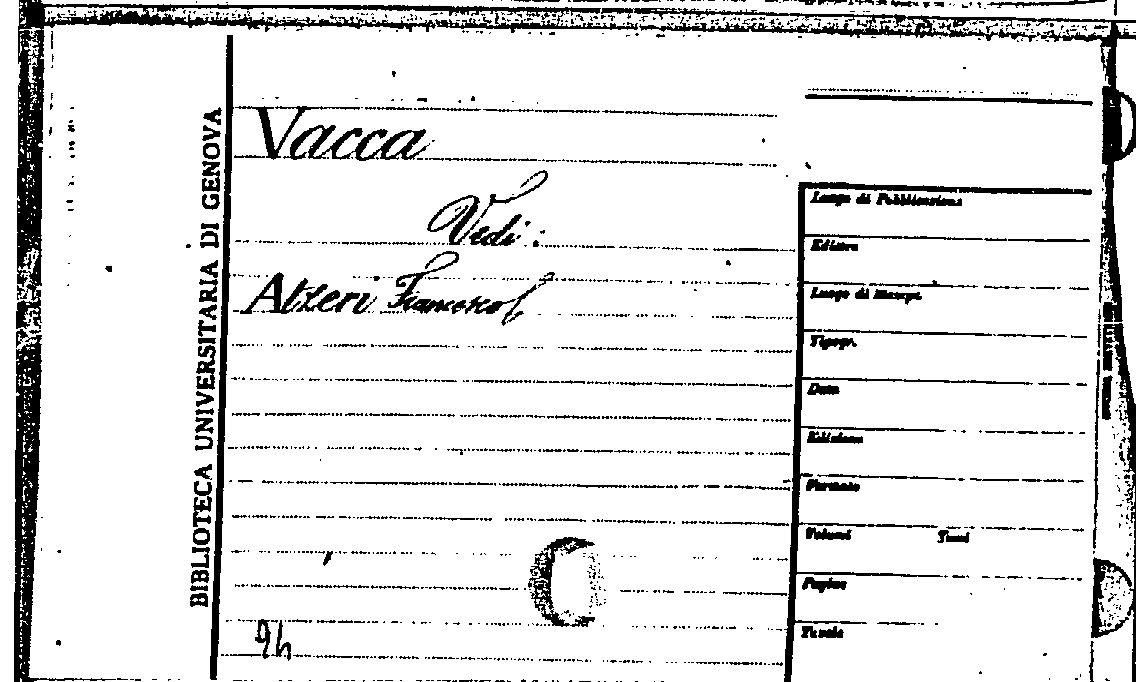 BIBLIOTECA UNIVERSITARIA DI GENOVA
Vacca
Vedi:
Alteri Francesco
Luogo di Pubblicazione
Editore
Luogo di Stampa
Tipogr.
Data
Edizione
Formato
Volumi Tomi
Pagine
Tavole